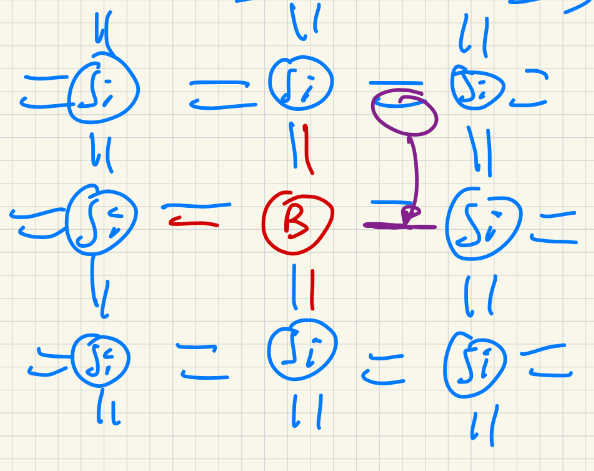 Si Si Si
Si B Si
Si Si Si